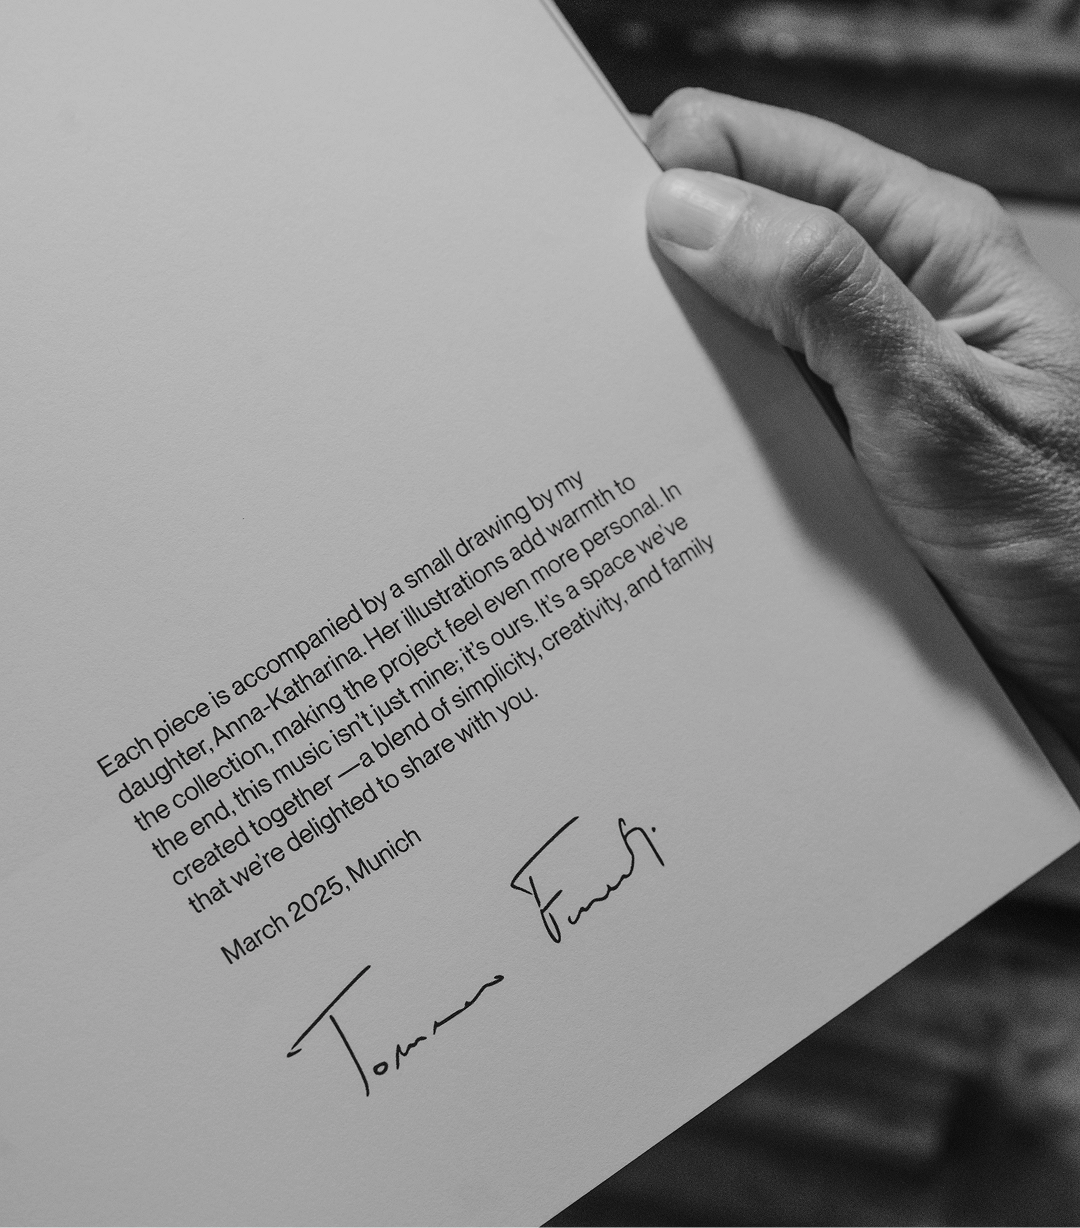 Each piece is accompanied by a small drawing by my
daughter, Anna-Katharina. Her illustrations add warmth to
the collection, making the project feel even more personal. In
the end, this music isn't just mine; it's ours. It's a space we've
created together —a blend of simplicity, creativity, and family
that we're delighted to share with you.
March 2025, Munich